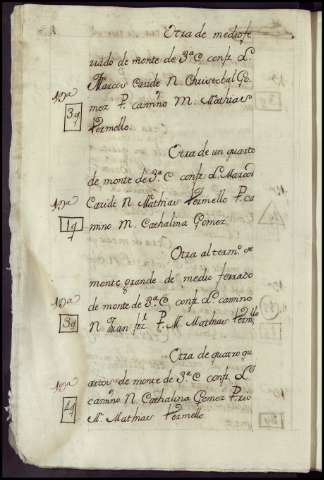 Otra de medio fe
rrado de monte de 3ª C confr. L.
Marcos Caride N. Christobal Go
mez P. camino M. Mathias
Vermello
Otra de un quarto
de monte de 3ª C confr. L. Marcos
Caride N. Mathias Vermello P. ca
mino M. Cathalina Gomez
Otra al termº de
monte grande de medio ferrado
de monte de 3ª C confr. L. camino
N. Juan frz P. M. Mathias Vermllo
Otra de quatro qu
artos de monte de 3ª C confr. L.
camino N. Cathalina Gomez P. rio
M. Mathias Vermello